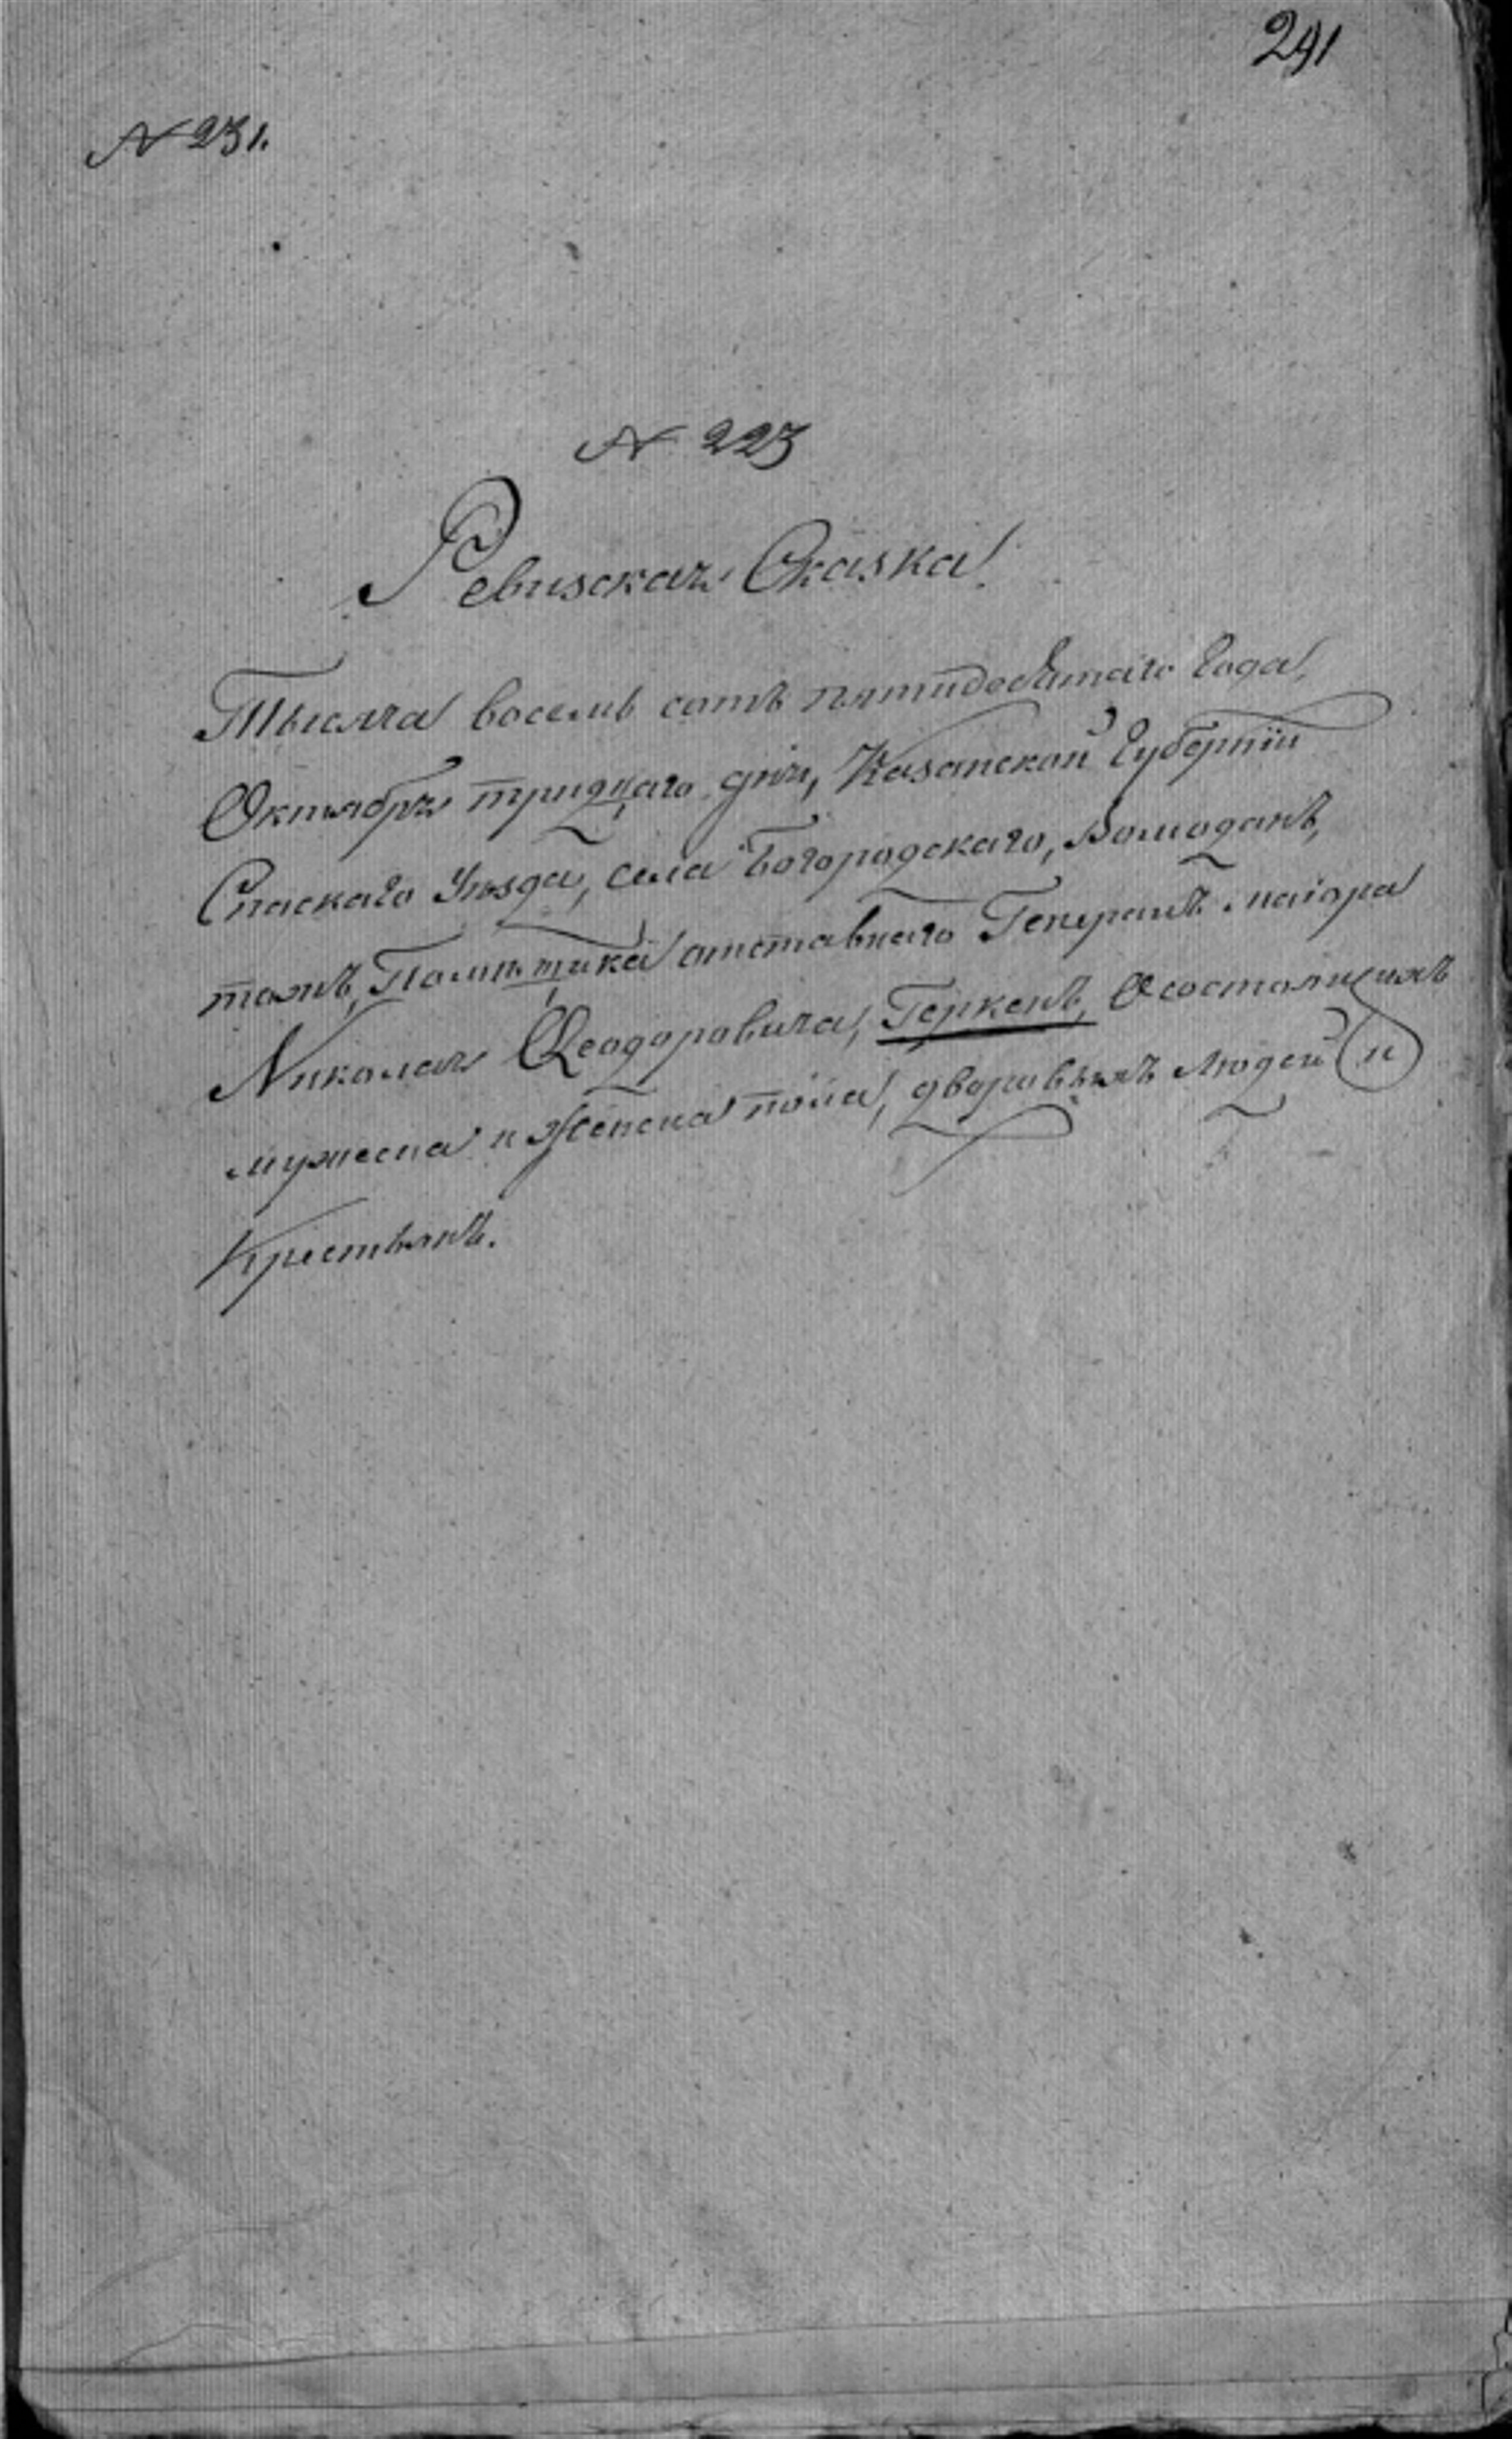 291
N 231.
N 223
Ревизская Сказка
Тысяча восемь сотъ пятидесятаго года,
Октября тридцаго дня, Казанской Губерніи
Спаскаго Уѣзда, села Богородскаго,
тожъ, Помѣщика отставнаго Генералъ маіора
Николая Ѳеодоровича, Геркенъ, О состоящихъ
мужеска и женска пола, дворовыхъ людей и
Крестьянъ.